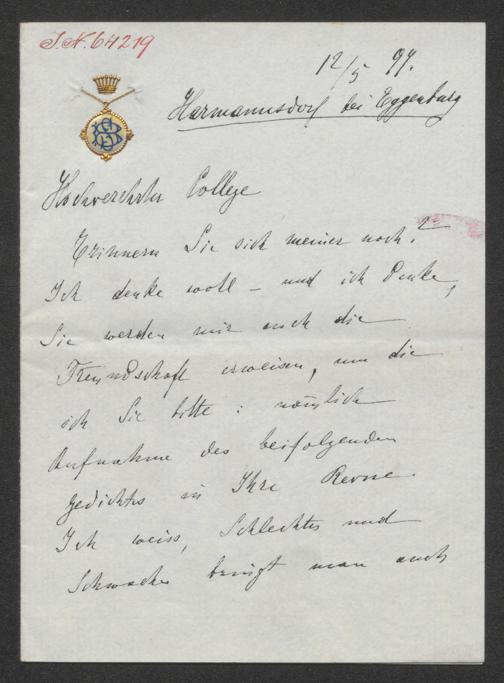 I.N. 64219
12/5 97.
Harmannsdorf bei Eggenburg
Hochverehrter College
Erinnern Sie sich meiner noch?
Ich denke wohl – und ich denke,
Sie werden mir auch die
Freundschaft erweisen, um die
ich Sie bitte: nämlich
Aufnahme des beifolgenden
Gedichts in Ihre Revue.
Ich weiss, Schlechtes und
Schwaches bringt man auch